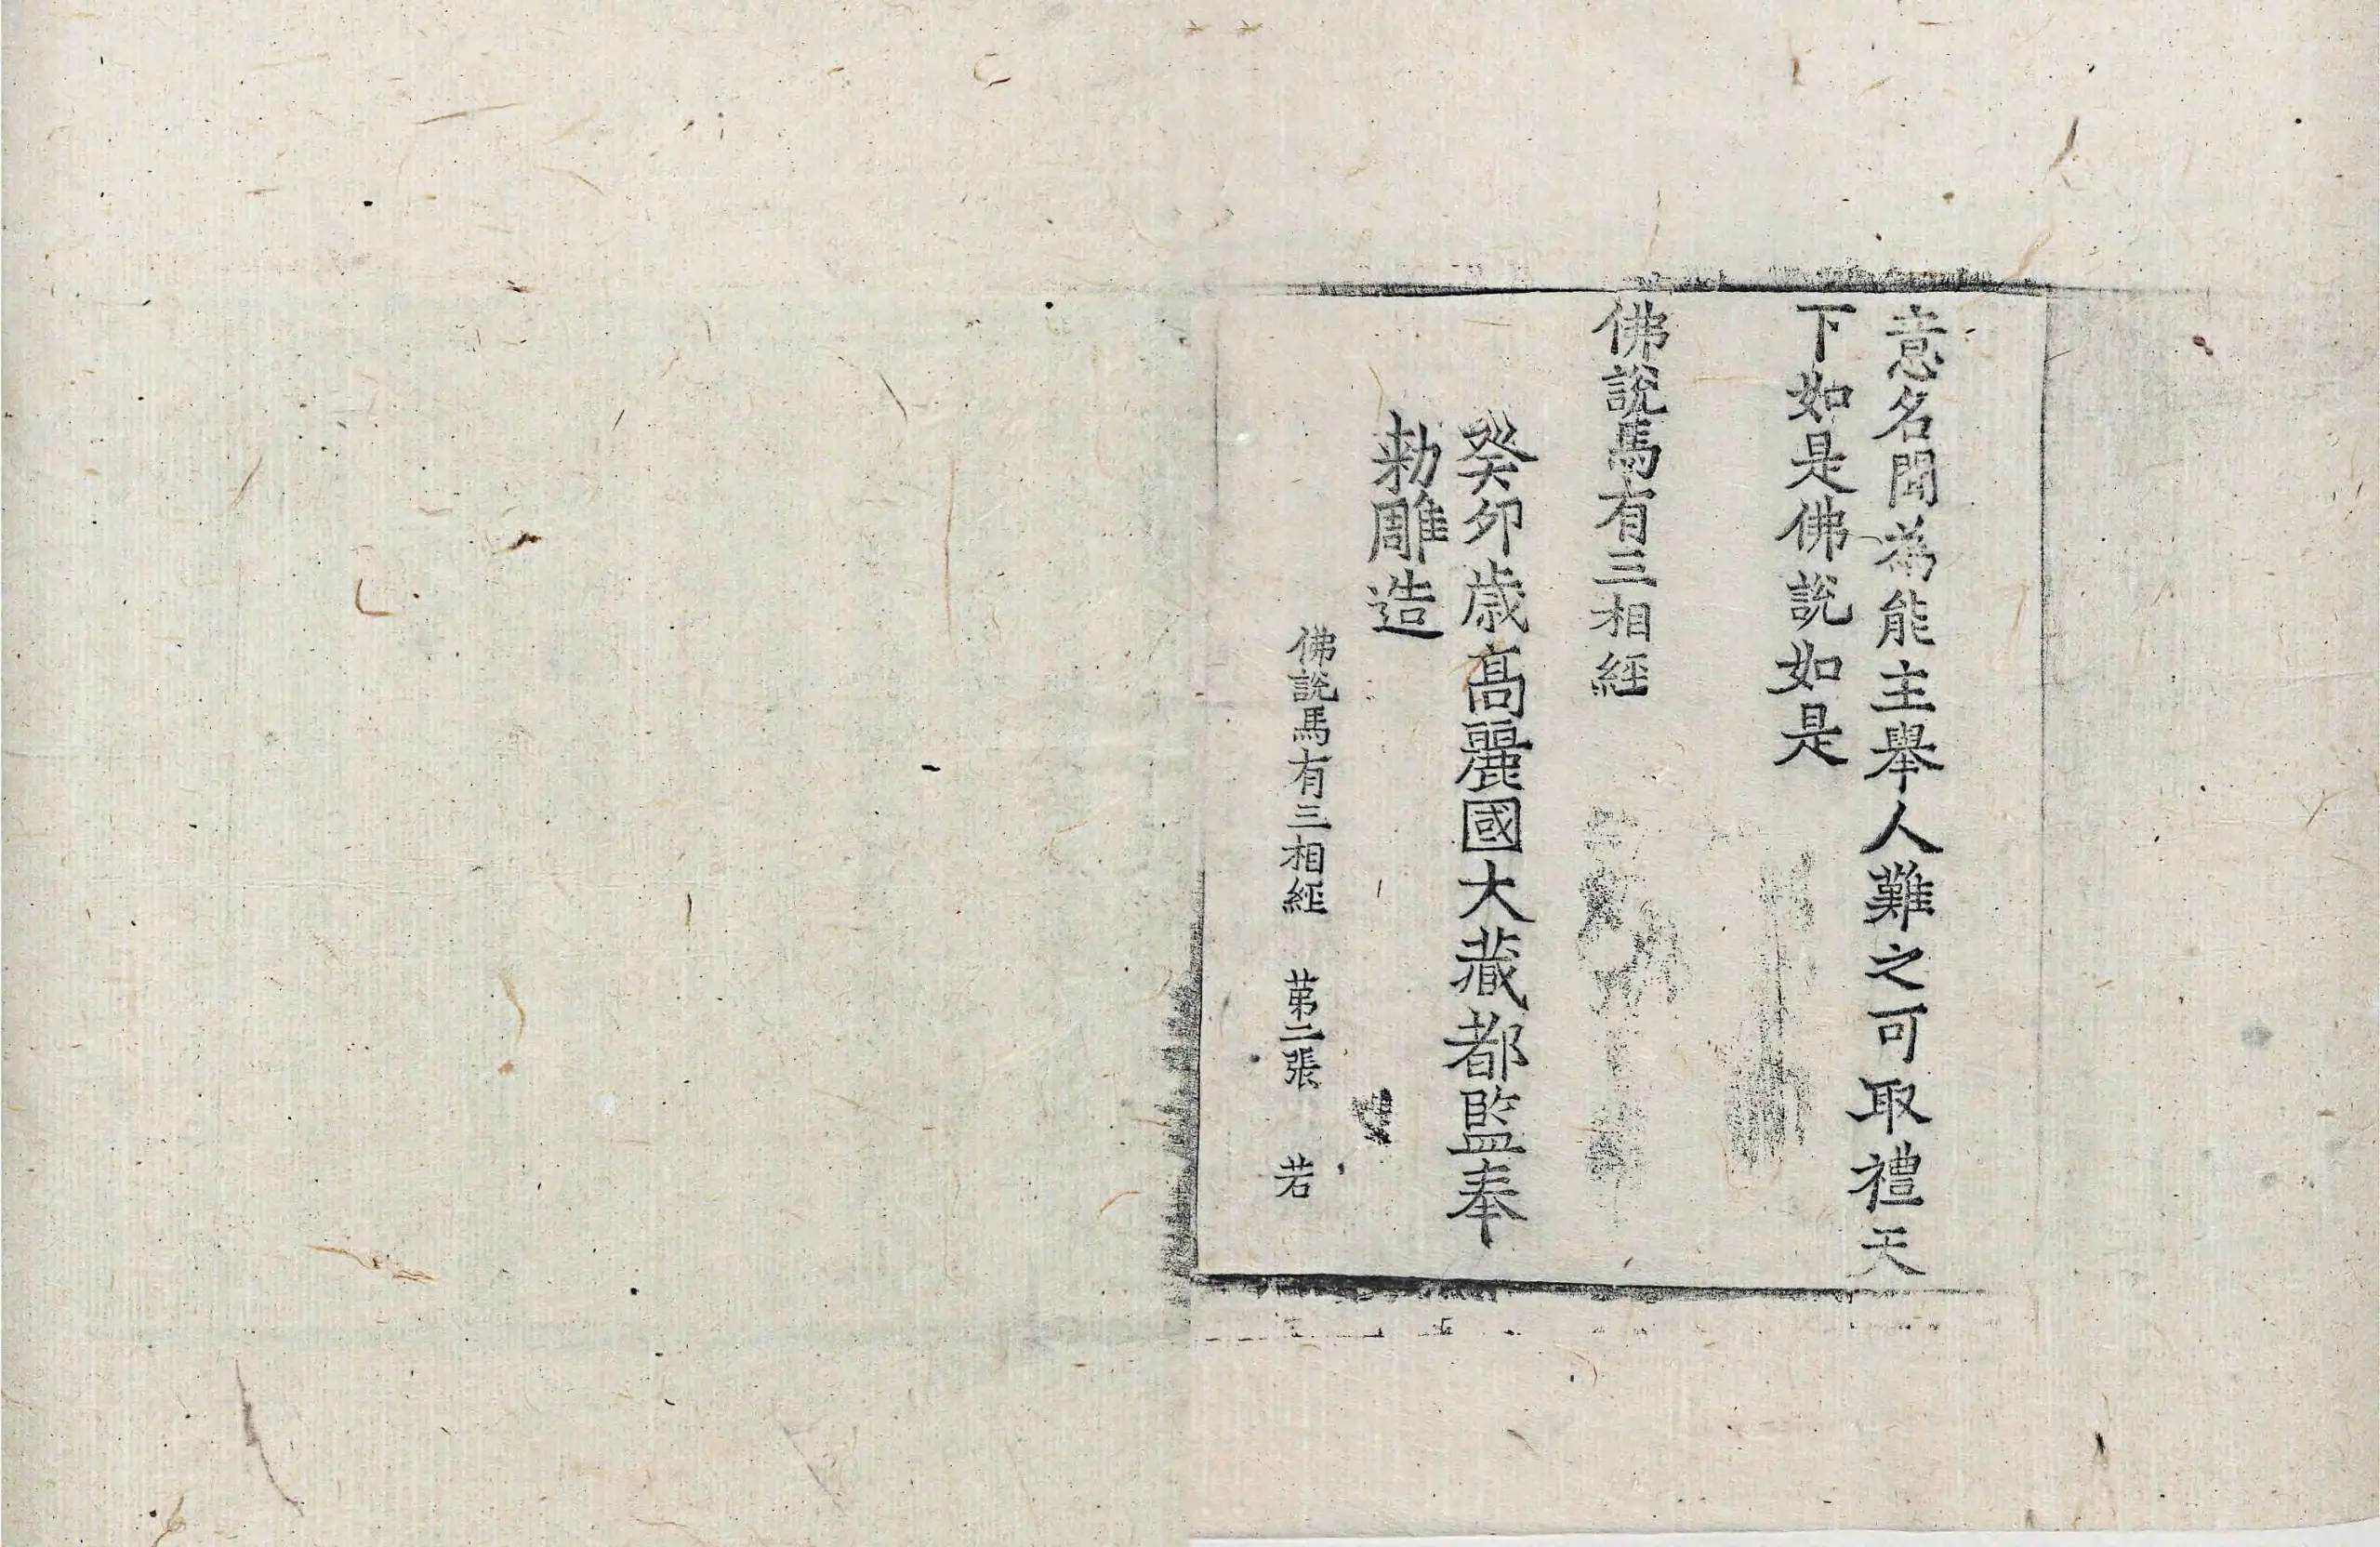 意名聞為能主舉人難之可取禮天
下如是佛說如是
佛說馬有三相經
癸卯歲高麗國大藏都監奉
勅雕造
佛說馬有三相經 苐二張 若